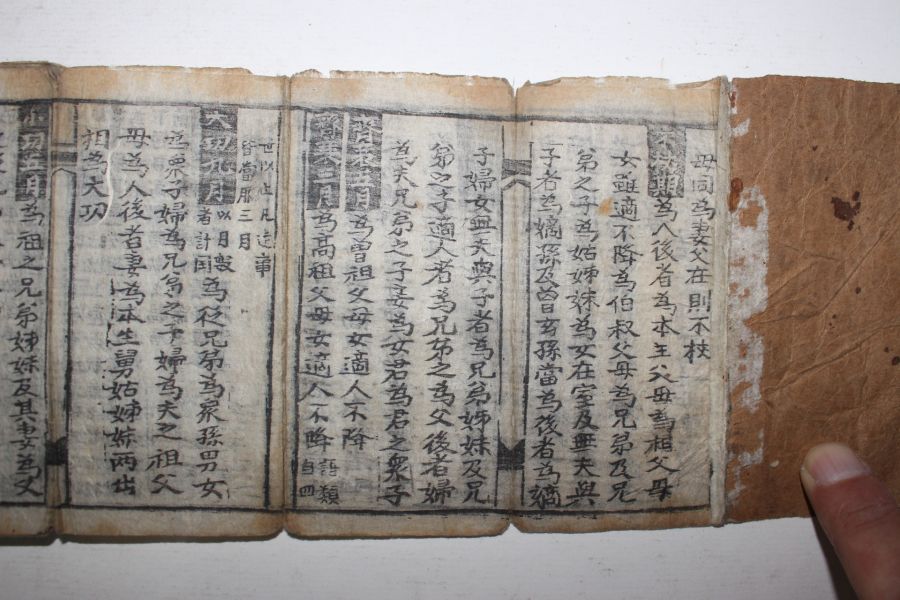 母同為妻父在則不杖
不杖期為人後者為本生父母為祖父母
女雖適不降為伯叔父母為兄弟及兄
弟之子為姑姊妹為女在室及無夫與
子者為嫡孫及曾玄孫當為後者為嫡
子婦女無夫與子者為兄弟姊妹及兄
弟之子適人者為兄弟之為父後者婦
為夫兄弟之子妾為女君為君之衆子
齊衰五月為曾祖父母女適人不降
齊衰三月為高祖父母女適人不降語類自四
世以上凡逮事皆當服三月
大功九月以月數者計閏為從兄弟為衆孫男女
為衆子婦為兄弟之子婦為夫之祖父
母為人後者妻為本生舅姑姊妹兩出
相為大功
小功五月為祖之兄弟姊妹及其妻為父